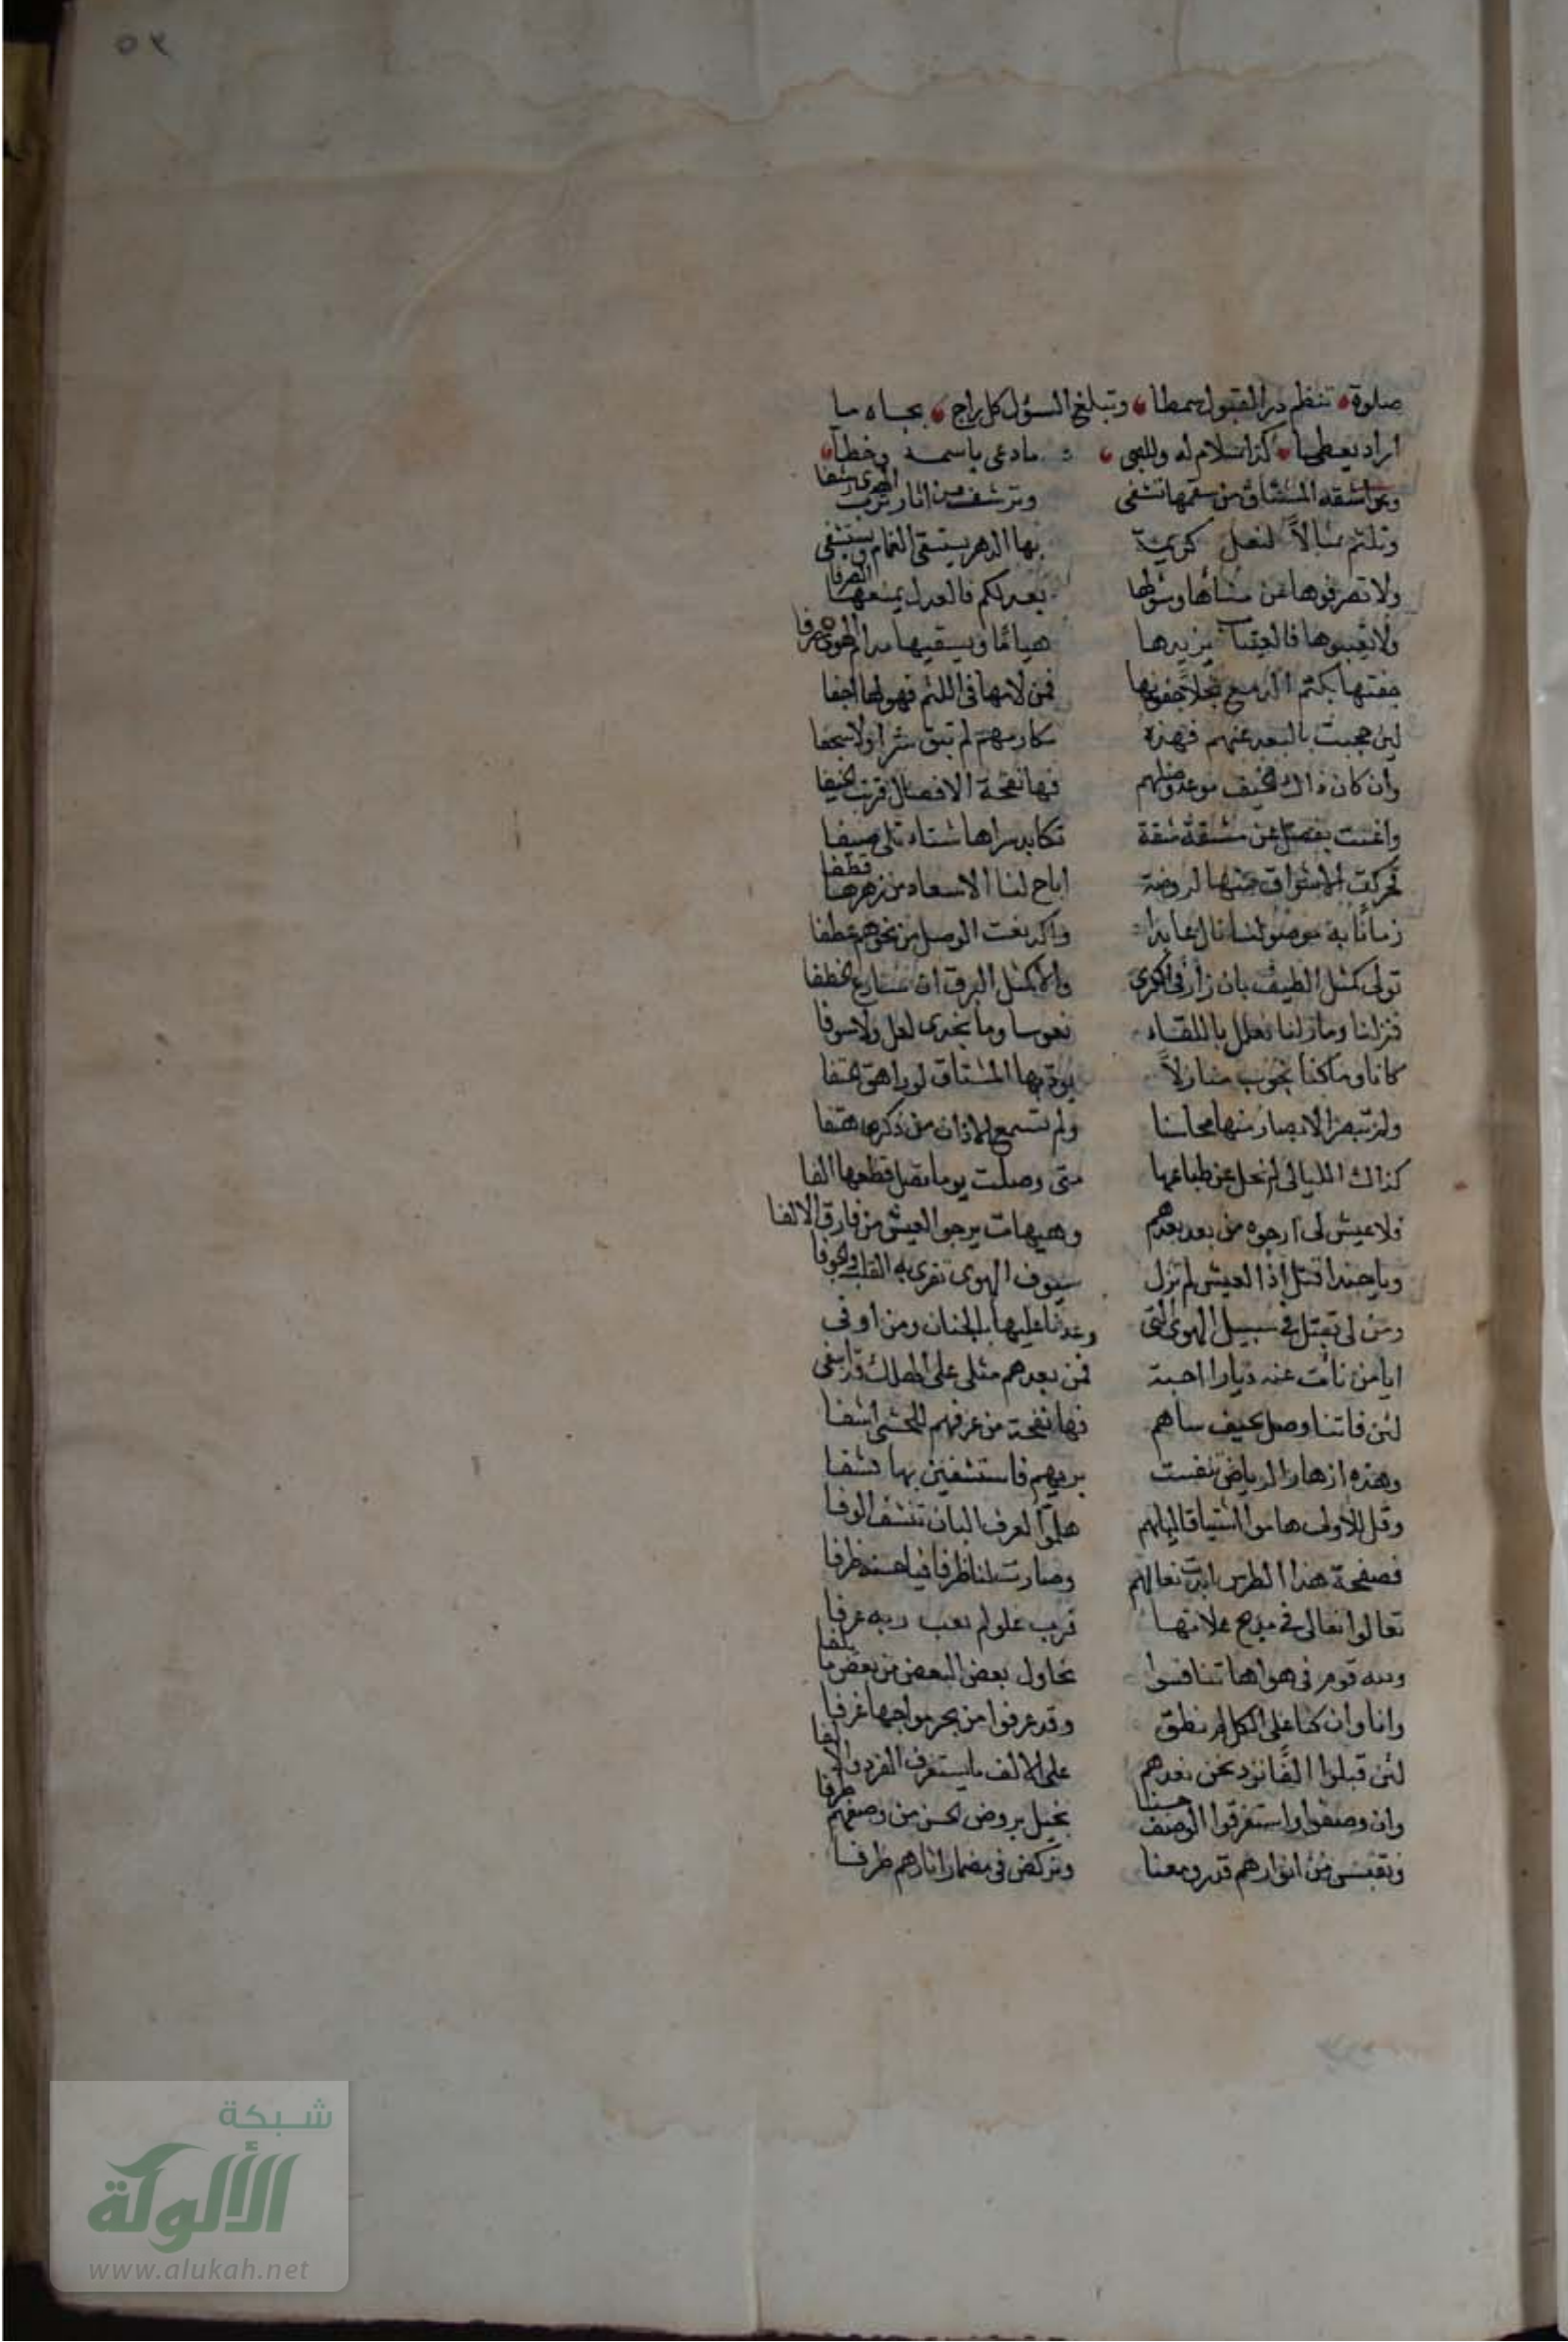 ٥٣
صلوة تنظم در القبول سمطا وتبلغ السؤل كل راج بجاه ما
اراد يعطى كذا سلام له وللصحب ما دعى باسمه وخطا
المشتاق من سقمها تشفى وترشف من اثار ترب الهدى رشفا
وتلثم مثالاً لنعل كريمة بها الدهر يستسقى الغمام ويستشفى
ولا تصرفوها عن هواها وسؤلها بعدلكم فالعدل يمنعها الصرفا
ولا تعتبوها فالعتاب يزيدها هياما ويسقيها مدام الهوى صرفا
جفتها بكتم الدمع بخلا جفونها فمن لامها في اللثم فهو لها اجفا
لئن حجبت بالبعد عنهم فهذه مكارمهم لم تبق سترا ولا سجفا
وان كان ذاك الخيف موعد وصلهم فها نفحة الافضال قربت الخيفا
واغنت بفضل عن مشقة شقة تكابد سراها شتاء تلى صيفا
تحركت الاشواق منها لروضة اباح لنا الاسعاد من زهرها قطفا
زمانا به موصولنا نال عايدا واكد نعت الوصل من نحوهم عطفا
تولى كمثل الطيف بان زار في الكرى والا كمثل البرق ان سارع الخطفا
فنزلنا وما زلنا نعلل باللقاء نفوسا وما يجدى لعل ولا سوفا
كانا وما كنا نجوب منازلاً يود بها المشتاق لو راهق الحتفا
ولم تبصر الابصار منها محاسنا ولم تسمع الاذان من ذكرها هتفا
كذاك الليالى لم تحل عن طباعها متى وصلت يوما تصل قطعها الفا
فلا عيش لى ارجوه من بعد بعدهم وهيهات يرجو العيش من فارق الالفا
ويا حبذا قتل اذا العيش لم تزل سيوف الهوى تفرى به القلب والجوفا
ومن لى بقتل في سبيل الهوى التى وعدنا عليها بالجنان ومن اوفى
ايا من نات عنه ديار احبة فمن بعدهم مثلى على الهلك قد اشفى
لئن فاتنا وصل بخيف مناهم فها نفحة من عرفهم للحشى اشفا
وهذه ازهار الرياض تنفست بريهم فاستشفين بها تشفا
وقل للاولى هاموا اشتياقا لبابهم هلموا لعرف البان ننشف الوفا
فصفحة هذا الطرس ابدت نعالهم وصارت لنا ظرفا فيا حسنه ظرفا
تعالوا نغالى في مديح علائها فرب غلو لم يعب ربه عرفا
ولله قوم في هواها تنافسوا تحاول بعض البعض من بعض ما يلفا
وانا وان كنا على الكل لم نطق وقد غرفوا من بحر مواجها غرفا
لئن قبلوا الفا نزد نحن بعدهم على الالف ما يستغرق الفرد والالفا
وان وصفوا واستغرقوا الوصف حسنا نجيل بروض الحسن من وصفهم طرفا
ونقبس من انوارهم قدر وسعنا ونركض في مضمار اثارهم طرفا
شبكة
الألوكة
www.alukah.net